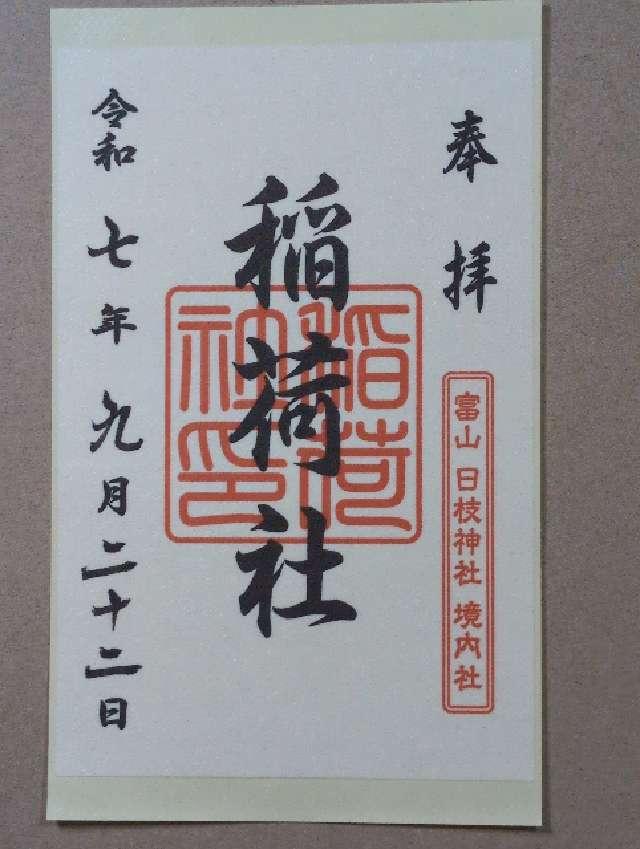 奉拝
富山 日枝神社 境内社
稲荷社
稲荷社印
令和七年九月二十二日